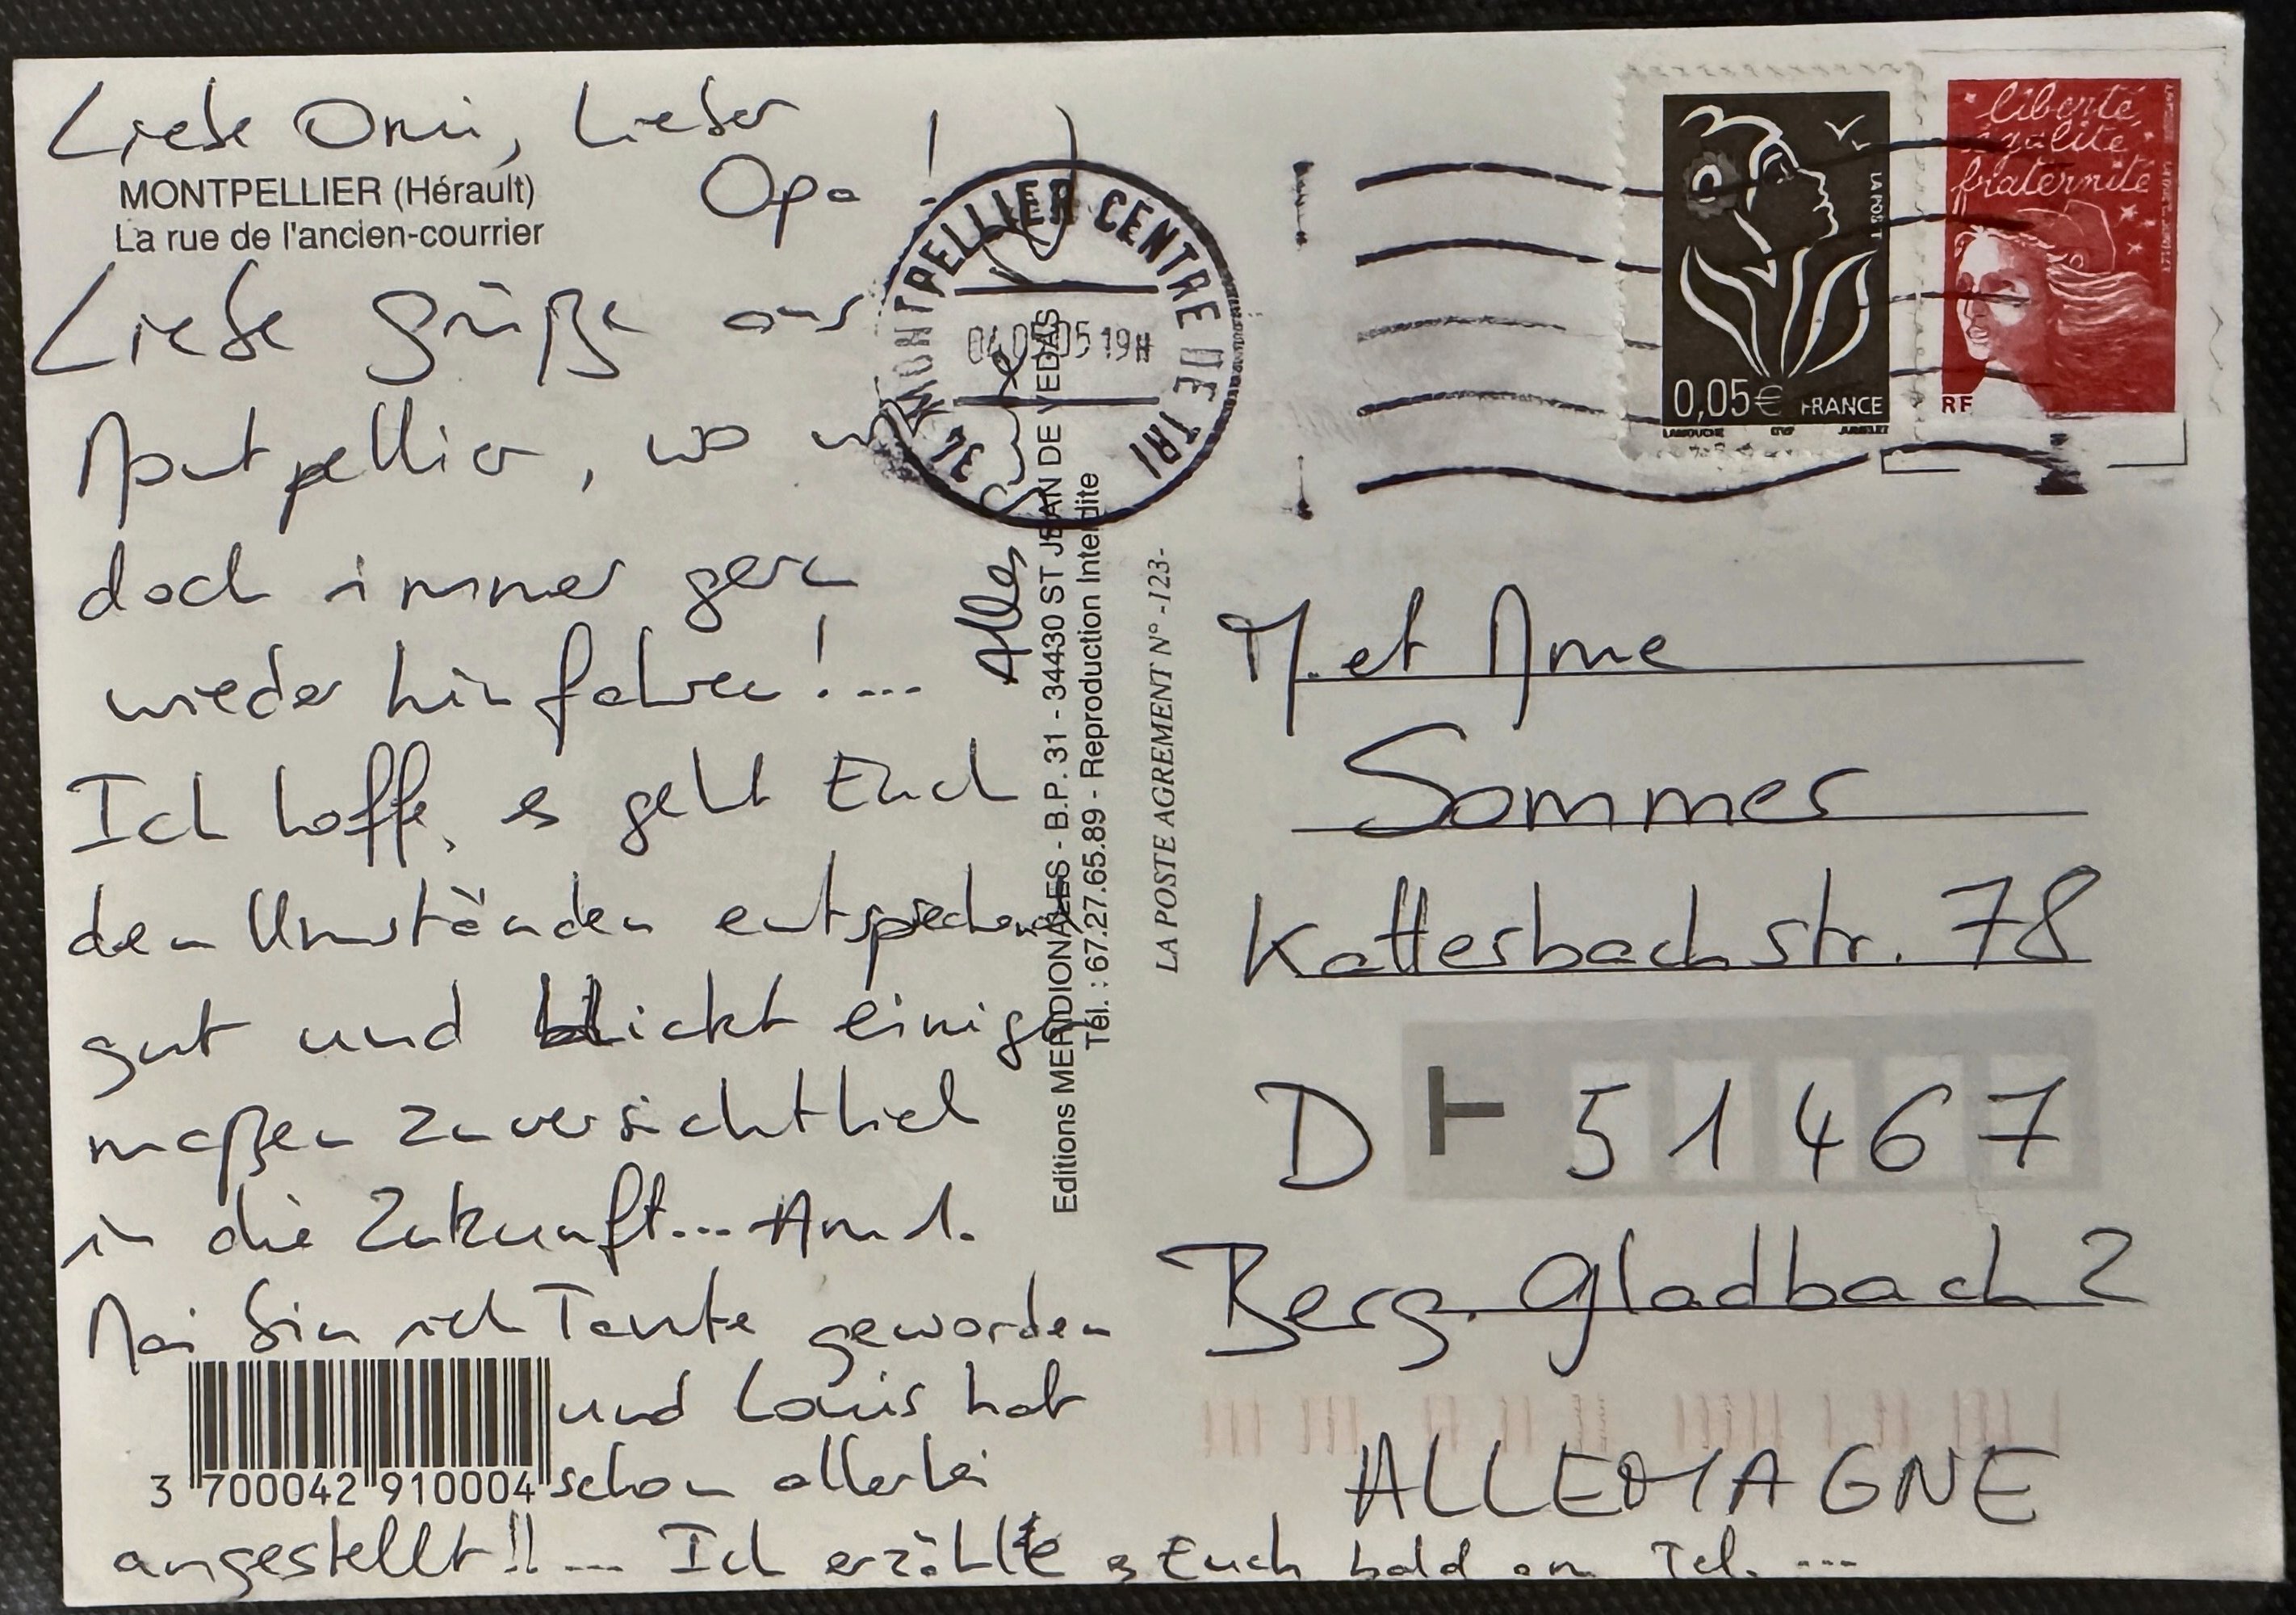 Liebe Omi, Lieber
Opa !
MONTPELLIER (Hérault)
La rue de l'ancien-courrier
Liebe Grüße aus
Montpellier, wo wir
doch immer gern
wieder hinfahren!....
Ich hoffe, es geht Euch
den Umständen entsprechend
gut und blickt einiger
maßen zuversichtlich
in die Zukunft... Am 1.
Mai bin ich Tante geworden
und Louis hat
schon allerlei
angestellt!! ... Ich erzähle es Euch bald am Tel. ...
3 700042 910004
Alles
Editions MERIDIONALES - B.P. 31 - 34430 ST JEAN DE VEDAS
Tél. : 67.27.65.89 - Reproduction Interdite
LA POSTE AGREMENT N° -123-
34 MONTPELLIER CENTRE DE TRI
04.05.05 19H
LA POSTE
0,05€ FRANCE
LAMOUCHE ITVF JUMELET
liberté
égalité
fraternité
RF
M. et Mme
Sommer
Katterbachstr. 78
D 51467
Berg. Gladbach 2
ALLEMAGNE